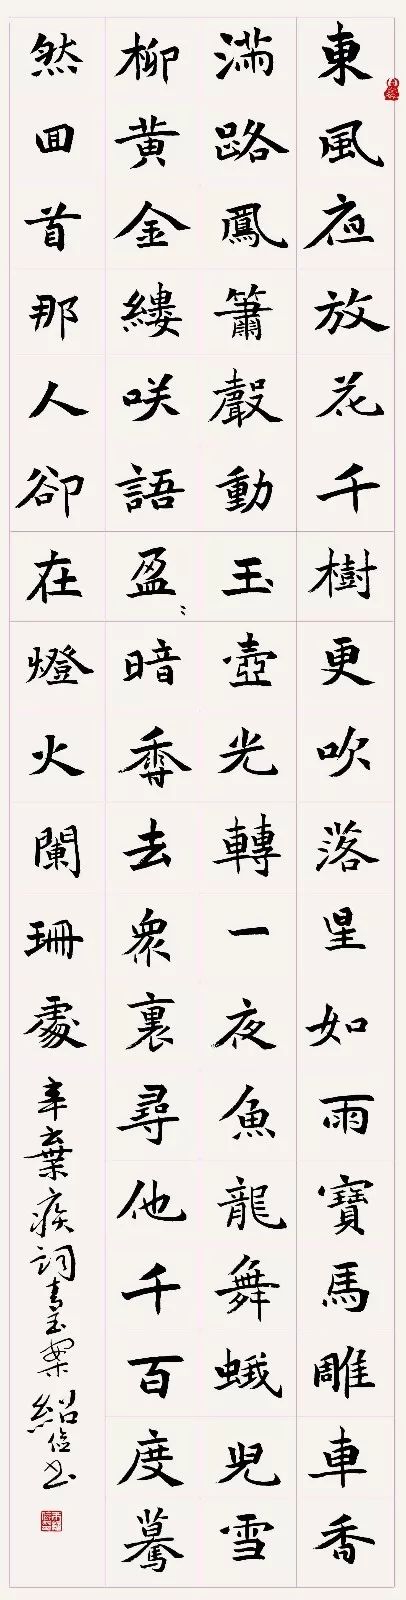 東風夜放花千樹更吹落星如雨寶馬雕車香
滿路鳳簫聲動玉壺光轉一夜魚龍舞蛾兒雪
柳黃金縷咲語盈〻暗香去衆裏尋他千百度驀
然囬首那人卻在燈火闌珊處
辛棄疾詞青玉案紹書